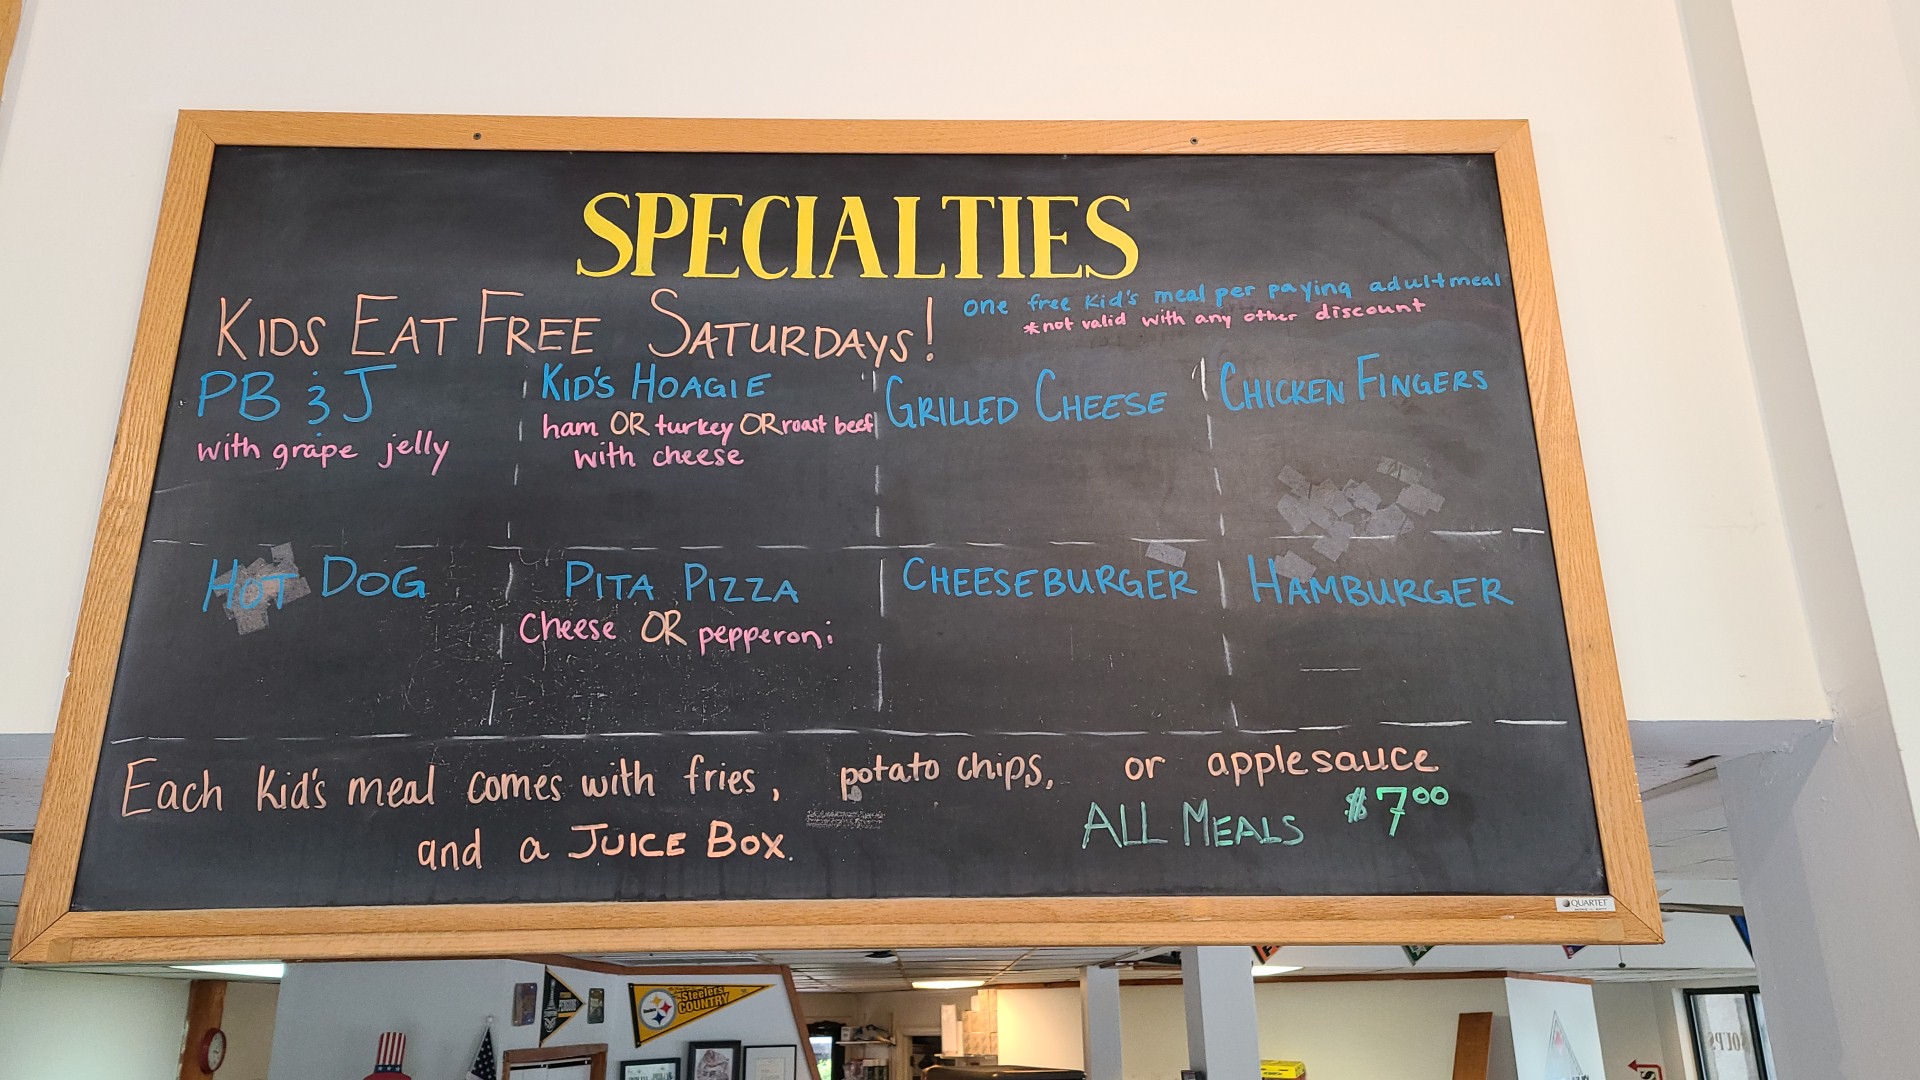 SPECIALTIES
KIDS EAT FREE SATURDAYS!
one free Kid's meal per paying adult meal
*not valid with any other discount
PB & J
with grape jelly
KID'S HOAGIE
ham OR turkey OR roast beef
with cheese
GRILLED CHEESE
CHICKEN FINGERS
HOT DOG
PITA PIZZA
Cheese OR pepperoni
CHEESEBURGER
HAMBURGER
Each Kid's meal comes with fries, potato chips, or applesauce
and a JUICE BOX.
ALL MEALS $7.00
QUARTET
Steelers
COUNTRY
SOUPS